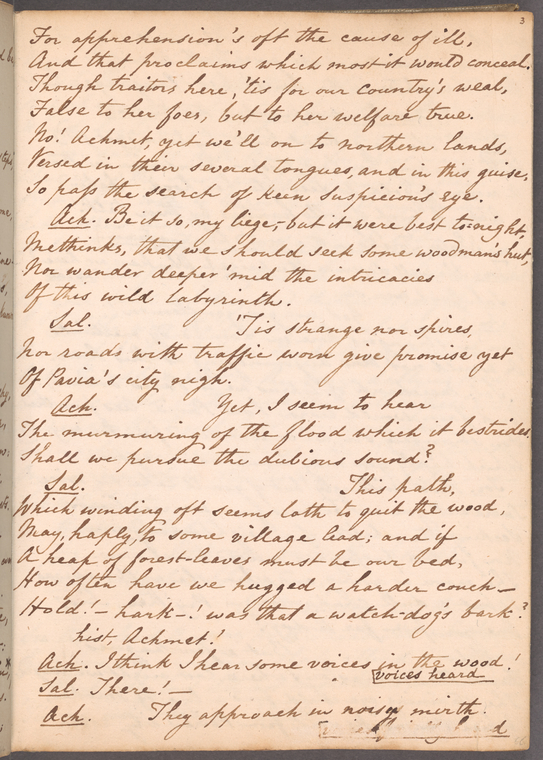 3
For apprehension's oft the cause of ill,
And that proclaims which most it would conceal.
Though traitors here, 'tis for our country's weal,
False to her foes, but to her welfare true.
No! Achmet, yet we'll on to northern lands,
Versed in their several tongues, and in this guise,
So pass the search of keen suspicion's eye.
Ach. Be it so, my liege,- but it were best to=night,
Methinks, that we should seek some woodman's hut,
Nor wander deeper 'mid the intricacies
Of this wild labyrinth.
Sal. 'Tis strange nor spires,
Nor roads with traffic worn give promise yet
Of Pavia's city nigh.
Ach. Yet, I seem to hear
The murmuring of the flood which it bestrides.
Shall we pursue the dubious sound?
Sal. This path,
Which winding oft seems loth to quit the wood,
May, haply, to some village lead; and if
A heap of forest-leaves must be our bed,
How often have we hugged a harder couch—
Hold!— hark—! was that a watch-dog's bark?
hist, Achmet!
Ach. I think I hear some voices in the wood!
voices heard
Sal. There!—
Ach. They approach in noisy mirth.